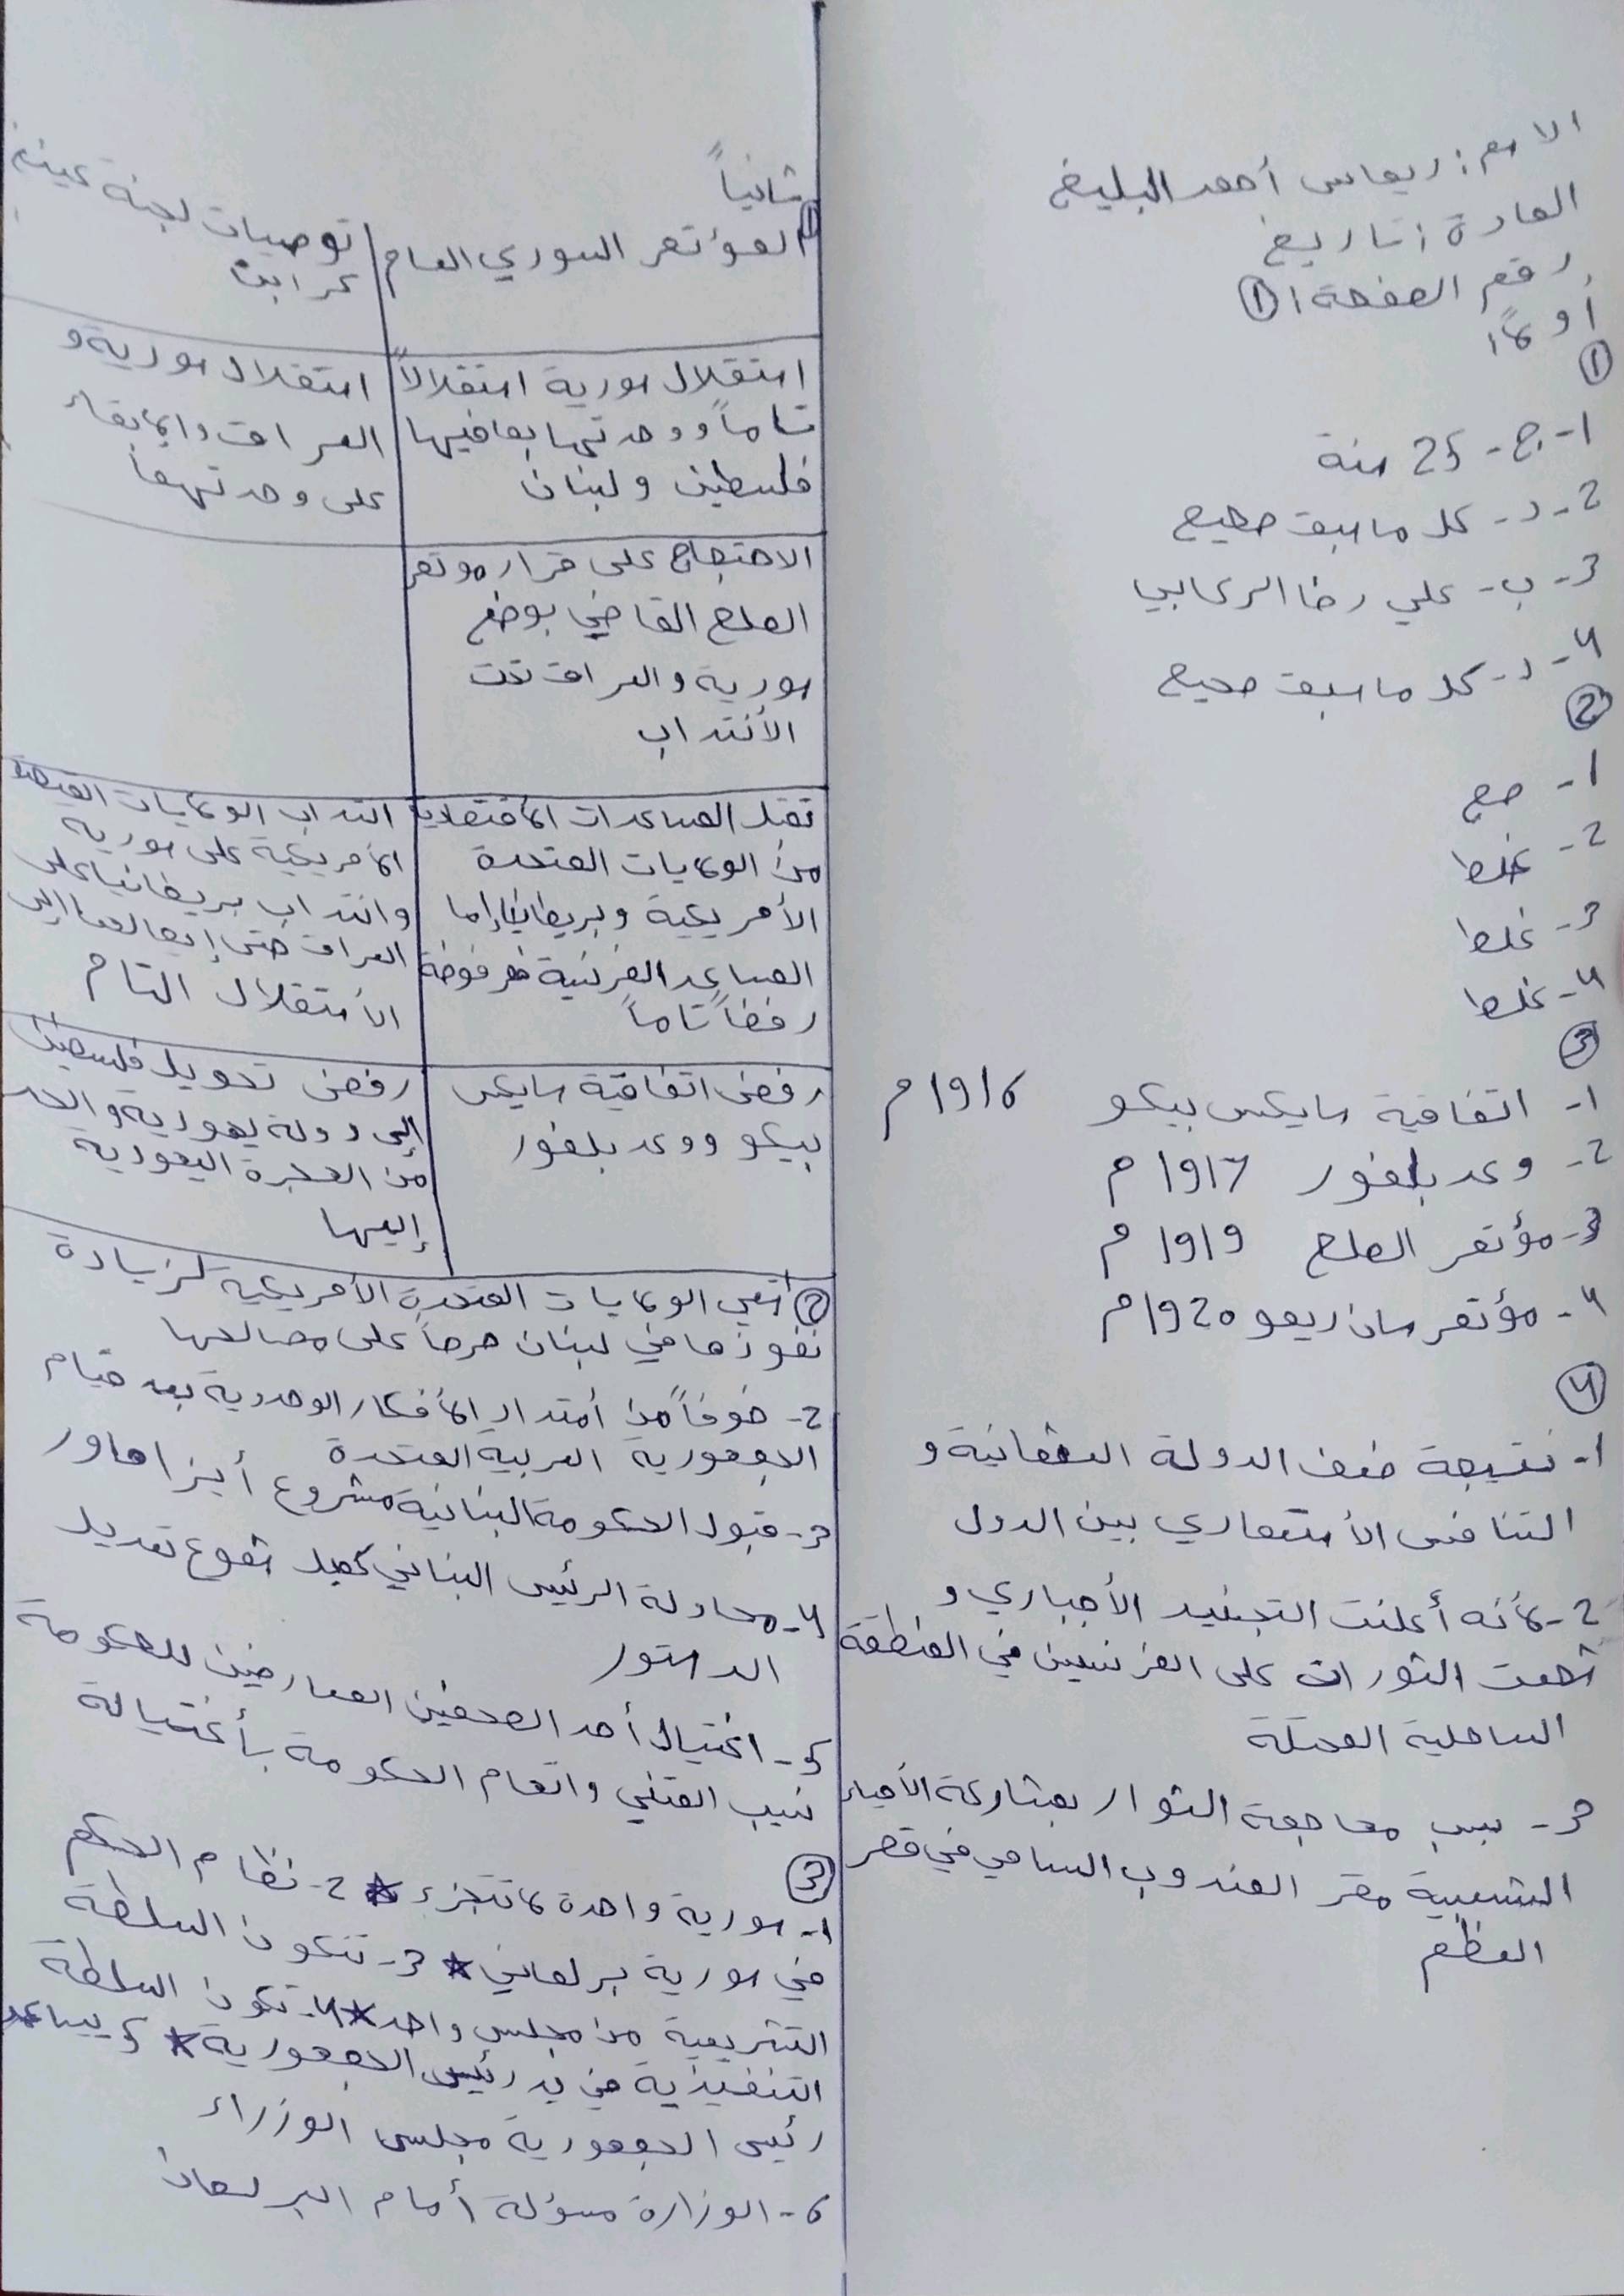 الاسم: ريماس أحمد البليخ
المادة: تاريخ
رقم الصفحة: ①
أولاً:
①
1- ج - 25 سنة
2- د - كل ماسبق صحيح
3- ب - علي رضا الركابي
4- د - كل ماسبق صحيح
②
1- صح
2- غلط
3- غلط
4- غلط
③
1- اتفاقية سايكس بيكو 1916 م
2- وعد بلفور 1917 م
3- مؤتمر الصلح 1919 م
4- مؤتمر سان ريمو 1920 م
④
1- نتيجة ضعف الدولة العثمانية و
التنافس الأستعماري بين الدول
2- لأنه أعلنت التجنيد الأجباري و
شجعت الثورات على الفرنسيين في المنطقة
الساحلية المحتلة
3- سبب مهاجمة الثوار بمشاركة الأحياء
الشعبية مقر المندوب السامي في قصر
العظم
ثانياً
① المؤتمر السوري العام | توصيات لجنة كينغ
كراين
استقلال سورية استقلالاً | استقلال سورية و
تاماً ووحدتها بمافيها | العراق والإبقاء
فلسطين ولبنان | على وحدتهما
الاحتجاج على قرار موتمر
الصلح القاضي بوضع
سورية والعراق تحت
الأنتداب
تقبل المساعدات الأقتصادية | انتداب الولايات المتحدة
من الولايات المتحدة | الأمريكية على سورية
الأمريكية وبريطانيا إما | وانتداب بريطانيا على
المساعد الفرنسية مرفوضة | العراق حتى إيصالهما إلى
رفضاً تاماً | الأستقلال التام
رفض اتفاقية سايكس | رفض تحويل فلسطين
بيكو ووعد بلفور | إلى دولة يهودية والحد
من الهجرة اليهودية
إليها
② 1- سعي الولايات المتحدة الأمريكية لزيادة
نفوذها في لبنان حرصاً على مصالحها
2- خوفاً من أمتداد الأفكار الوحدوية بعد قيام
الجمهورية العربية المتحدة
3- قبول الحكومة البنانية مشروع أيزنهاور
4- محاولة الرئيس البناني كميل شمون تعديل
الدستور
5- اغتيال أحد الصحفين المعارضين للحكومة
نسيب المتني واتهام الحكومة بأغتياله
③
1- سورية واحدة لاتتجزء * 2- نظام الحكم
في سورية برلماني * 3- تتكون السلطة
التشريعية من مجلس واحد * 4- تكون السلطة
التنفيذية في يد رئيس الجمهورية * 5 يساعد
رئيس الجمهورية مجلس الوزراء
6- الوزارة مسؤلة أمام البرلمان